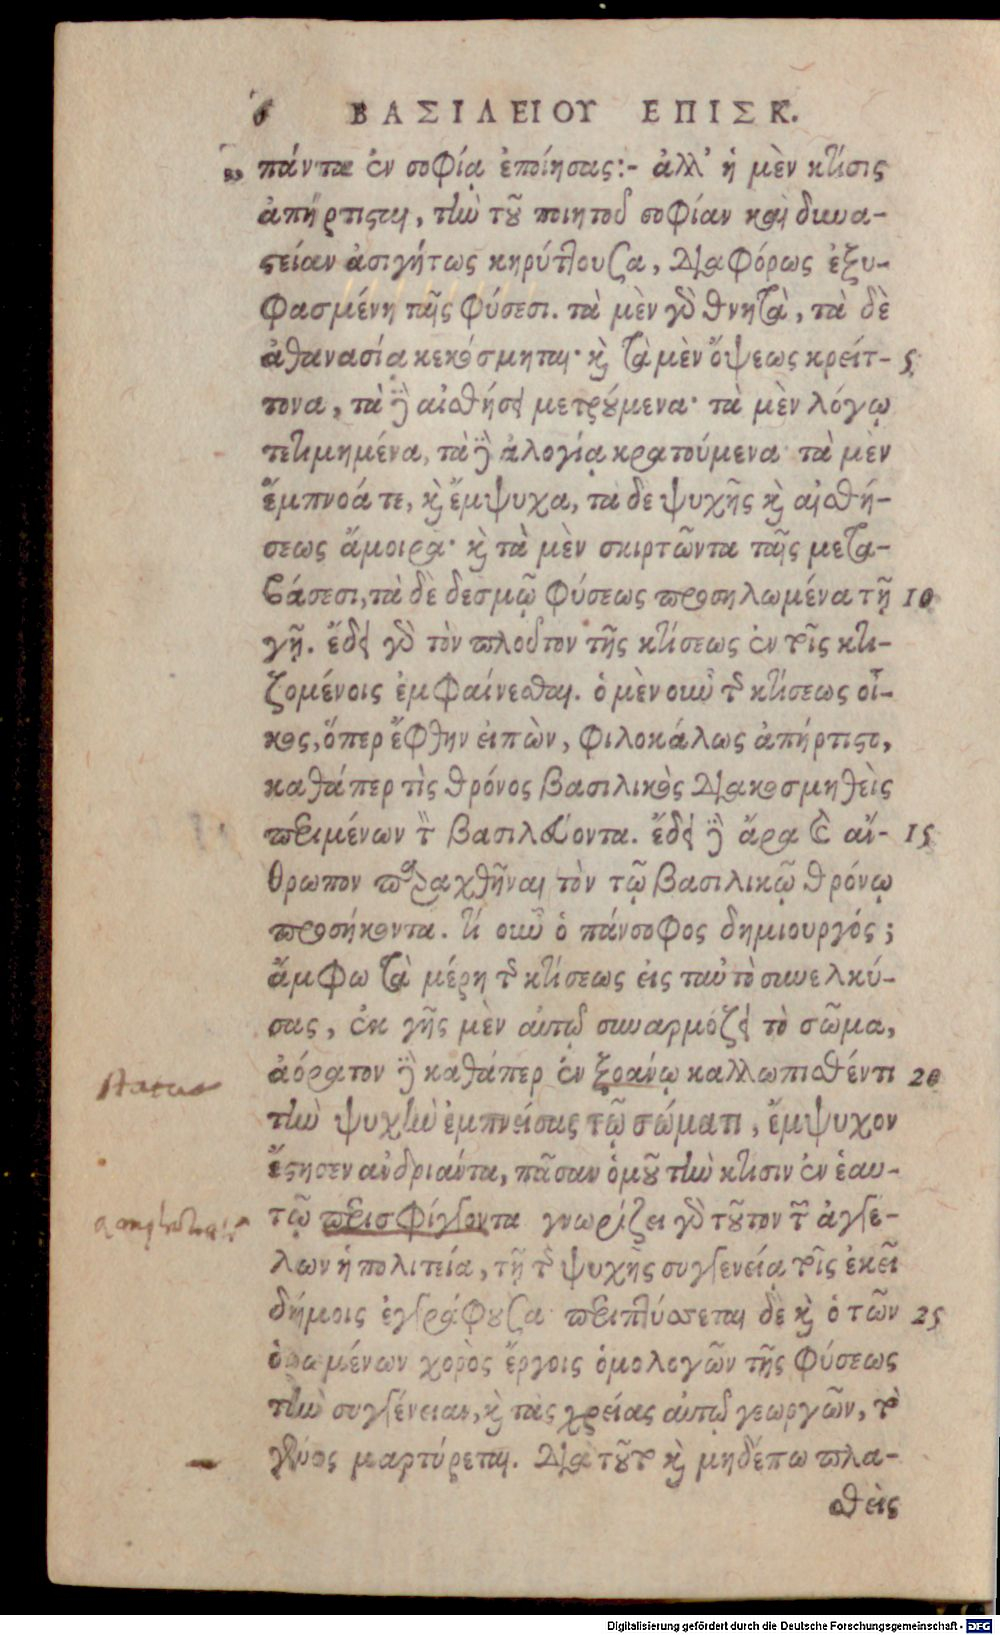 6 ΒΑΣΙΛΕΙΟΥ ΕΠΙΣΚ.
πάντα ἐν σοφίᾳ ἐποίησας:- ἀλλ' ἡ μὲν κτίσις
ἀπήρτισται, τὴν τοῦ ποιητοῦ σοφίαν καὶ δυνα-
στείαν ἀσιγήτως κηρύττουσα, διαφόρως ἐξυ-
φασμένη ταῖς φύσεσι. τὰ μὲν γὸ θνητὰ, τὰ δὲ
ἀθανασία κεκόσμηται· καὶ τὰ μὲν ὄψεως κρείτ- 5
τονα, τὰ δὲ αἰσθήσει μετρούμενα· τὰ μὲν λόγῳ
τετιμημένα, τὰ δὲ ἀλογίᾳ κρατούμενα· τὰ μὲν
ἔμπνοά τε, καὶ ἔμψυχα, τὰ δὲ ψυχῆς καὶ αἰσθή-
σεως ἄμοιρα· καὶ τὰ μὲν σκιρτῶντα ταῖς μετα-
βάσεσι, τὰ δὲ δεσμῷ φύσεως προσηλωμένα τῇ 10
γῇ. ἔδει γὸ τὸν πλοῦτον τῆς κτίσεως ἐν τοῖς κτι-
ζομένοις ἐμφαίνεσθαι. ὁ μὲν οὖν τῆς κτίσεως οἶ-
κος, ὅπερ ἔφθην εἰπὼν, φιλοκάλως ἀπήρτιστο,
καθάπερ τὶς θρόνος βασιλικὸς διακοσμηθεὶς
περιμένων τὸν βασιλεύοντα. ἔδει δὲ ἄρα καὶ ἄν- 15
θρωπον παραχθῆναι τὸν τῷ βασιλικῷ θρόνῳ
προσήκοντα. τί οὖν ὁ πάνσοφος δημιουργός;
ἄμφω τὰ μέρη τῆς κτίσεως εἰς ταὐτὸ συνελκύ-
σας, ἐκ γῆς μὲν αὐτῷ συναρμόζει τὸ σῶμα,
ἀόρατον δὲ καθάπερ ἐν ξοάνῳ καλλωπισθέντι 20
τὴν ψυχὴν ἐμπνεύσας τῷ σώματι, ἔμψυχον
ἔστησεν ἀνδριάντα, πᾶσαν ὁμοῦ τὴν κτίσιν ἐν ἑαυ-
τῷ περισφίγγοντα γνωρίζει γὸ τοῦτον τῶν ἀγγέ-
λων ἡ πολιτεία, τῇ τῆς ψυχῆς συγγενείᾳ τοῖς ἐκεῖ
δήμοις ἐγγράφουσα· περιπτύσσεται δὲ καὶ ὁ τῶν 25
ὁρωμένων χορὸς ἔργοις ὁμολογῶν τῆς φύσεως
τὴν συγγένειαν, καὶ τὰς χρείας αὐτῷ γεωργῶν, τὸ
γένος μαρτύρεται. Διὰ τοῦτο καὶ μηδέπω πλα-
σθεὶς
Digitalisierung gefördert durch die Deutsche Forschungsgemeinschaft - DFG